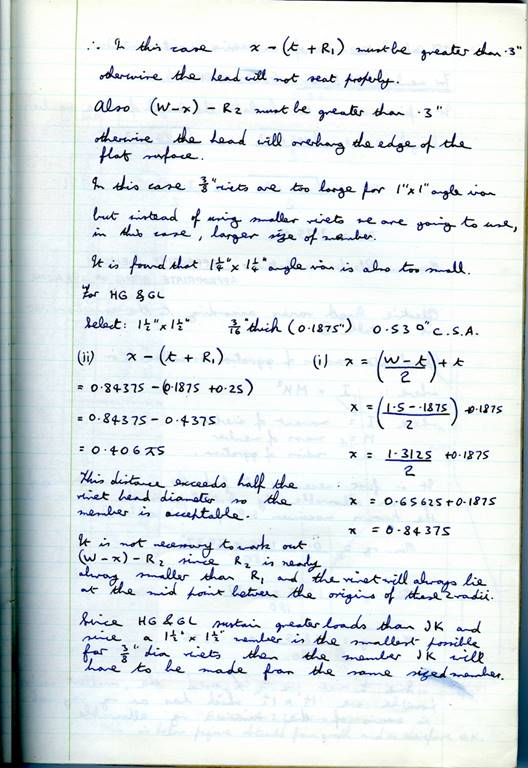 ∴ In this case x - (t + R₁) must be greater than .3"
otherwise the head will not seat properly.
Also (W-x) - R2 must be greater than .3"
otherwise the head will overhang the edge of the
flat surface.
In this case 3/8" rivets are too large for 1" x 1" angle iron
but instead of using smaller rivets we are going to use,
in this case, larger size of member.
It is found that 1¼" x 1¼" angle iron is also too small.
For HG & GL
Select: 1½" x 1½" 3/16" thick (0.1875") 0.530" C.S.A.
(ii) x - (t + R₁)
= 0.84375 - (0.1875 + 0.25)
= 0.84375 - 0.4375
= 0.40625
This distance exceeds half the
rivet head diameter so the
member is acceptable.
(i) x = (W - t / 2) + t
x = (1.5 - .1875 / 2) + 0.1875
x = 1.3125 / 2 + 0.1875
x = 0.65625 + 0.1875
x = 0.84375
It is not necessary to work out
(W-x) - R2 since R2 is nearly
always smaller than R₁ and the rivet will always lie
at the mid point between the origins of these 2 radii.
Since HG & GL sustain greater loads than JK and
since a 1½" x 1½" member is the smallest possible
for 3/8" dia rivets then the member JK will
have to be made from the same sized member.